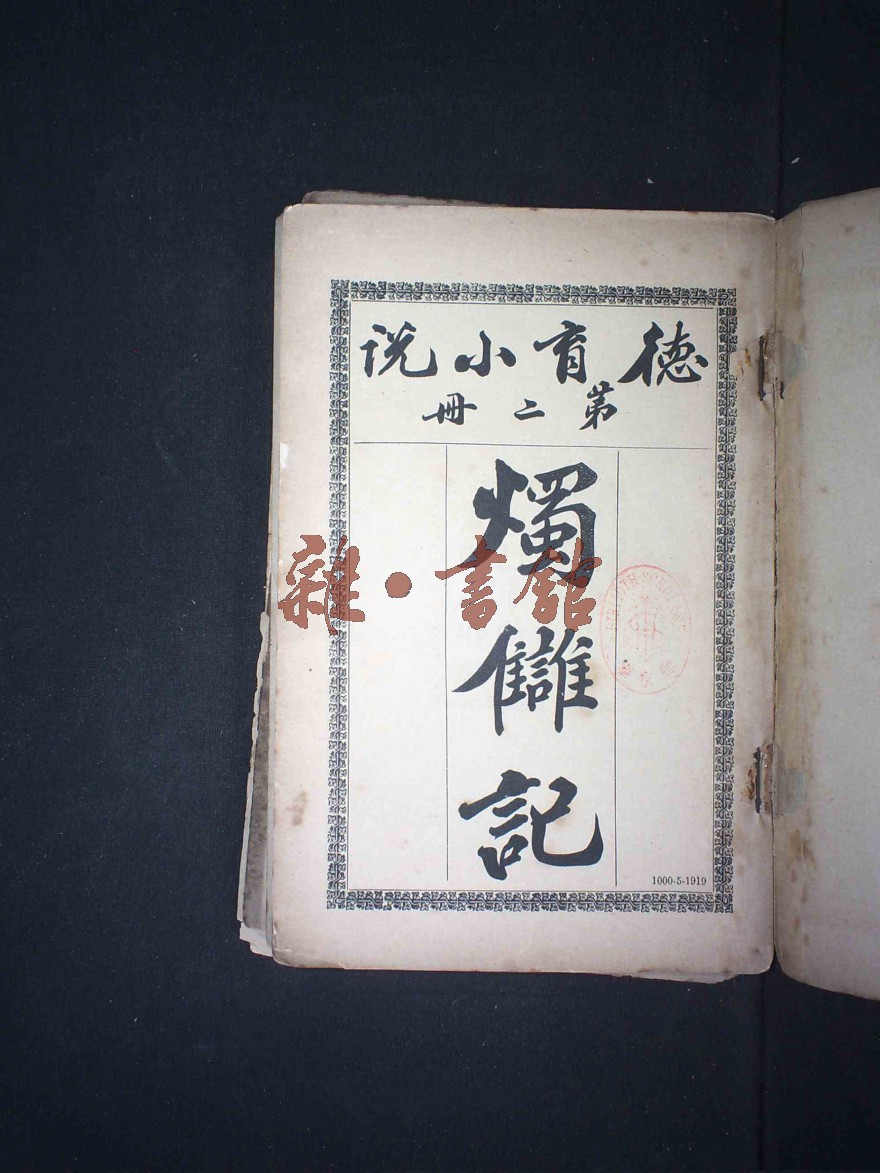 德育小説
第二冊
燭讎記
1000-5-1919
雜·書館